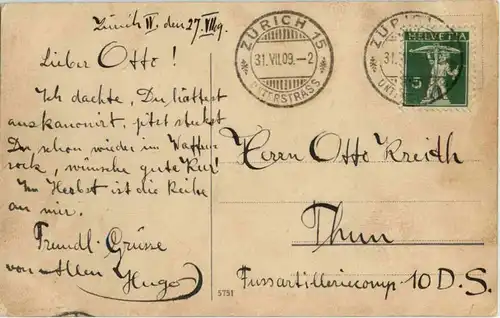 Zürich IV, den 27.VII.09.
Lieber Otto!
Ich dachte, Du hättest
auskanonirt, jetzt steckst
Du schon wieder im Waffen-
rock, wünsche gute Kur!
Im Herbst ist die Reihe
an mir.
Freundl. Grüsse
von Allen Hugo
ZÜRICH 15
31.VII.09.-2
ZÜRICH
31.
HELVETIA
5
Herrn Otto Kreith
Thun
Fussartilleriecomp. 10 D.S.
5751